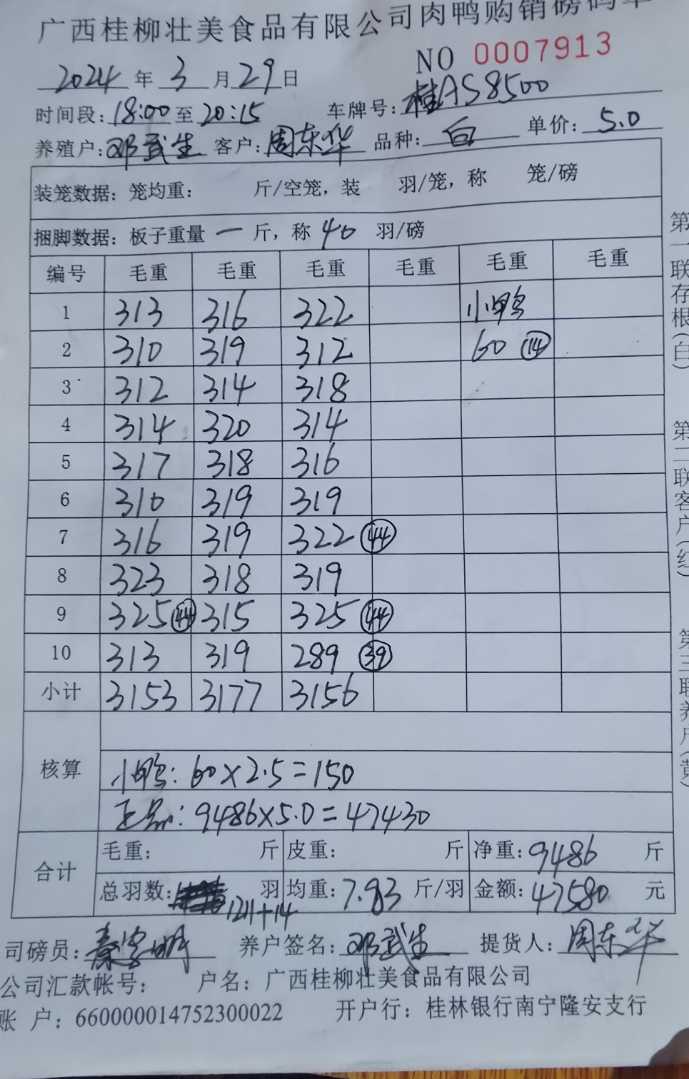 广西桂柳壮美食品有限公司肉鸭购销磅码单
NO 0007913
2024 年 3 月 29 日
时间段: 18:00 至 20:15 车牌号: 桂AS8500
养殖户: 邓武生 客户: 周东华 品种: 白 单价: 5.0
装笼数据: 笼均重: 斤/空笼, 装 羽/笼, 称 笼/磅
捆脚数据: 板子重量 一 斤, 称 40 羽/磅
编号 毛重 毛重 毛重 毛重 毛重 毛重
1 313 316 322 小鸭
2 310 319 312 60 ⑭
3 312 314 318
4 314 320 314
5 317 318 316
6 310 319 319
7 316 319 322 ㊹
8 323 318 319
9 325 ㊹ 315 325 ㊹
10 313 319 289 ㊴
小计 3153 3177 3156
核算
小鸭: 60×2.5=150
正品: 9486×5.0=47430
合计
毛重: 斤 皮重: 斤 净重: 9486 斤
总羽数: 1211+14 羽 均重: 7.83 斤/羽 金额: 47580 元
司磅员: 养户签名: 邓武生 提货人: 周东华
公司汇款帐号: 户名: 广西桂柳壮美食品有限公司
账 户: 660000014752300022 开户行: 桂林银行南宁隆安支行
第一联存根(白)
第二联客户(红)
第三联养户(黄)